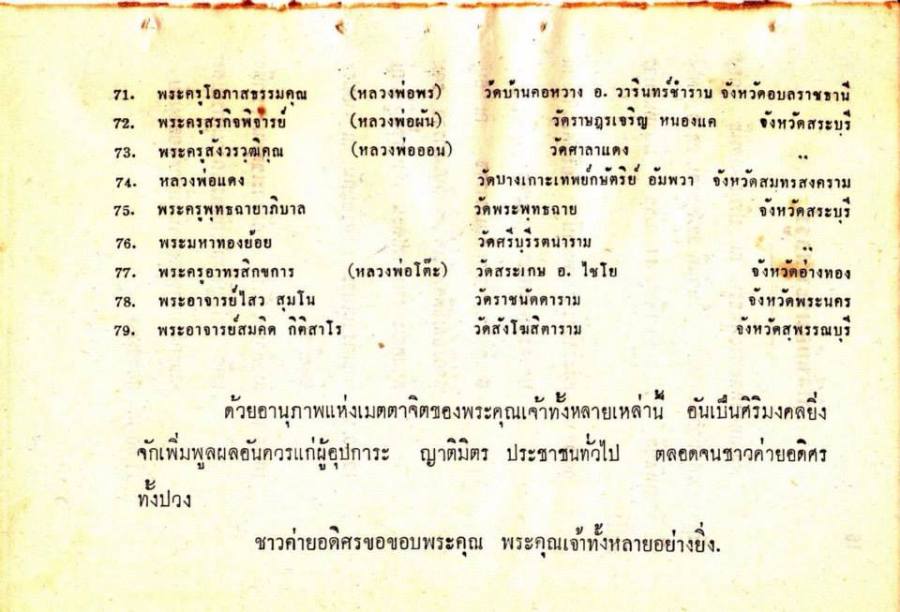 71. พระครูโอภาสธรรมคุณ (หลวงพ่อพร) วัดบ้านคอหวาง อ. วารินทร์ชำราบ จังหวัดอุบลราชธานี
72. พระครูสรกิจพิจารย์ (หลวงพ่อผัน) วัดราษฎรเจริญ หนองแค จังหวัดสระบุรี
73. พระครูสังวรวุฒิคุณ (หลวงพ่อออน) วัดศาลาแดง ,,
74. หลวงพ่อแดง วัดบางเกาะเทพย์กษัตริย์ อัมพวา จังหวัดสมุทรสงคราม
75. พระครูพุทธฉายาภิบาล วัดพระพุทธฉาย จังหวัดสระบุรี
76. พระมหาทองย้อย วัดศรีบุรีรตนาราม ,,
77. พระครูอาทรสิกขการ (หลวงพ่อโต๊ะ) วัดสระเกษ อ. ไชโย จังหวัดอ่างทอง
78. พระอาจารย์ไสว สุมโน วัดราชนัดดาราม จังหวัดพระนคร
79. พระอาจารย์สมคิด กิติสาโร วัดสังโฆสิตาราม จังหวัดสุพรรณบุรี
ด้วยอานุภาพแห่งเมตตาจิตของพระคุณเจ้าทั้งหลายเหล่านี้ อันเป็นศิริมงคลยิ่ง
จักเพิ่มพูลผลอันควรแก่ผู้อุปการะ ญาติมิตร ประชาชนทั่วไป ตลอดจนชาวค่ายอดิศร
ทั้งปวง
ชาวค่ายอดิศรขอขอบพระคุณ พระคุณเจ้าทั้งหลายอย่างยิ่ง.